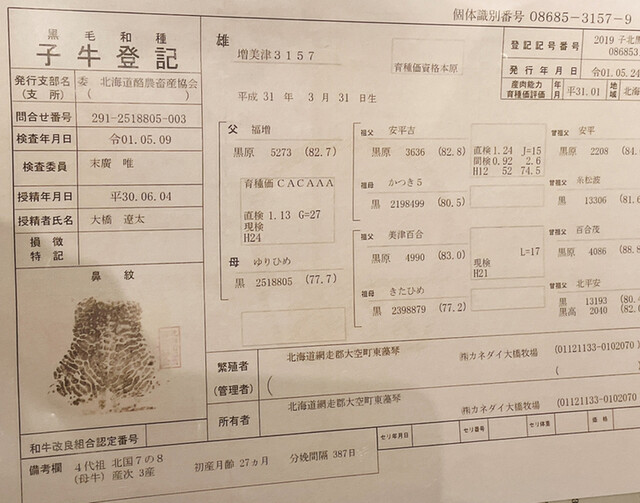 個体識別番号 08685-3157-9
黒毛和種
子牛登記
雄
増美津3157
育種価資格本原
登記記号番号 2019 子北黒
086853
発行年月日 令01.05.24
産肉能力育種価評価 年月 平31.01 地域 北海
発行支部名(支所) 委 北海道酪農畜産協会
( )
平成 31年 3月 31日生
問合せ番号 291-2518805-003
検査年月日 令01.05.09
検査委員 末廣 唯
授精年月日 平30.06.04
授精者氏名 大橋 遼太
損徴特記
鼻紋
父 福増
黒原 5273 (82.7)
育種価 CACAAA
直検 1.13 G=27
現検
H24
母 ゆりひめ
黒 2518805 (77.7)
祖父 安平吉
黒原 3636 (82.8)
祖母 かつき5
黒 2198499 (80.5)
祖父 美津百合
黒原 4990 (83.0)
祖母 きたひめ
黒 2398879 (77.2)
直検 1.24 J=15
間検 0.92 2.6
H12 52 74.5
現検 L=17
H21
曾祖父 安平
黒原 2208 (84.
曾祖父 糸松波
黒 13306 (81.6
曾祖父 百合茂
黒原 4086 (88.8
曾祖父 北平安
黒 13193 (80.
黒高 2040 (82.
繁殖者 北海道網走郡大空町東藻琴 ㈲カネダイ大橋牧場 (01121133-0102070)
(管理者) ( (
所有者 北海道網走郡大空町東藻琴 ㈲カネダイ大橋牧場 (01121133-0102070
和牛改良組合認定番号
セリ年月日 セリ番号 セリ体重 価格
備考欄 4代祖 北国7の8
(母牛) 産次 3産 初産月齢 27ヵ月 分娩間隔 387日